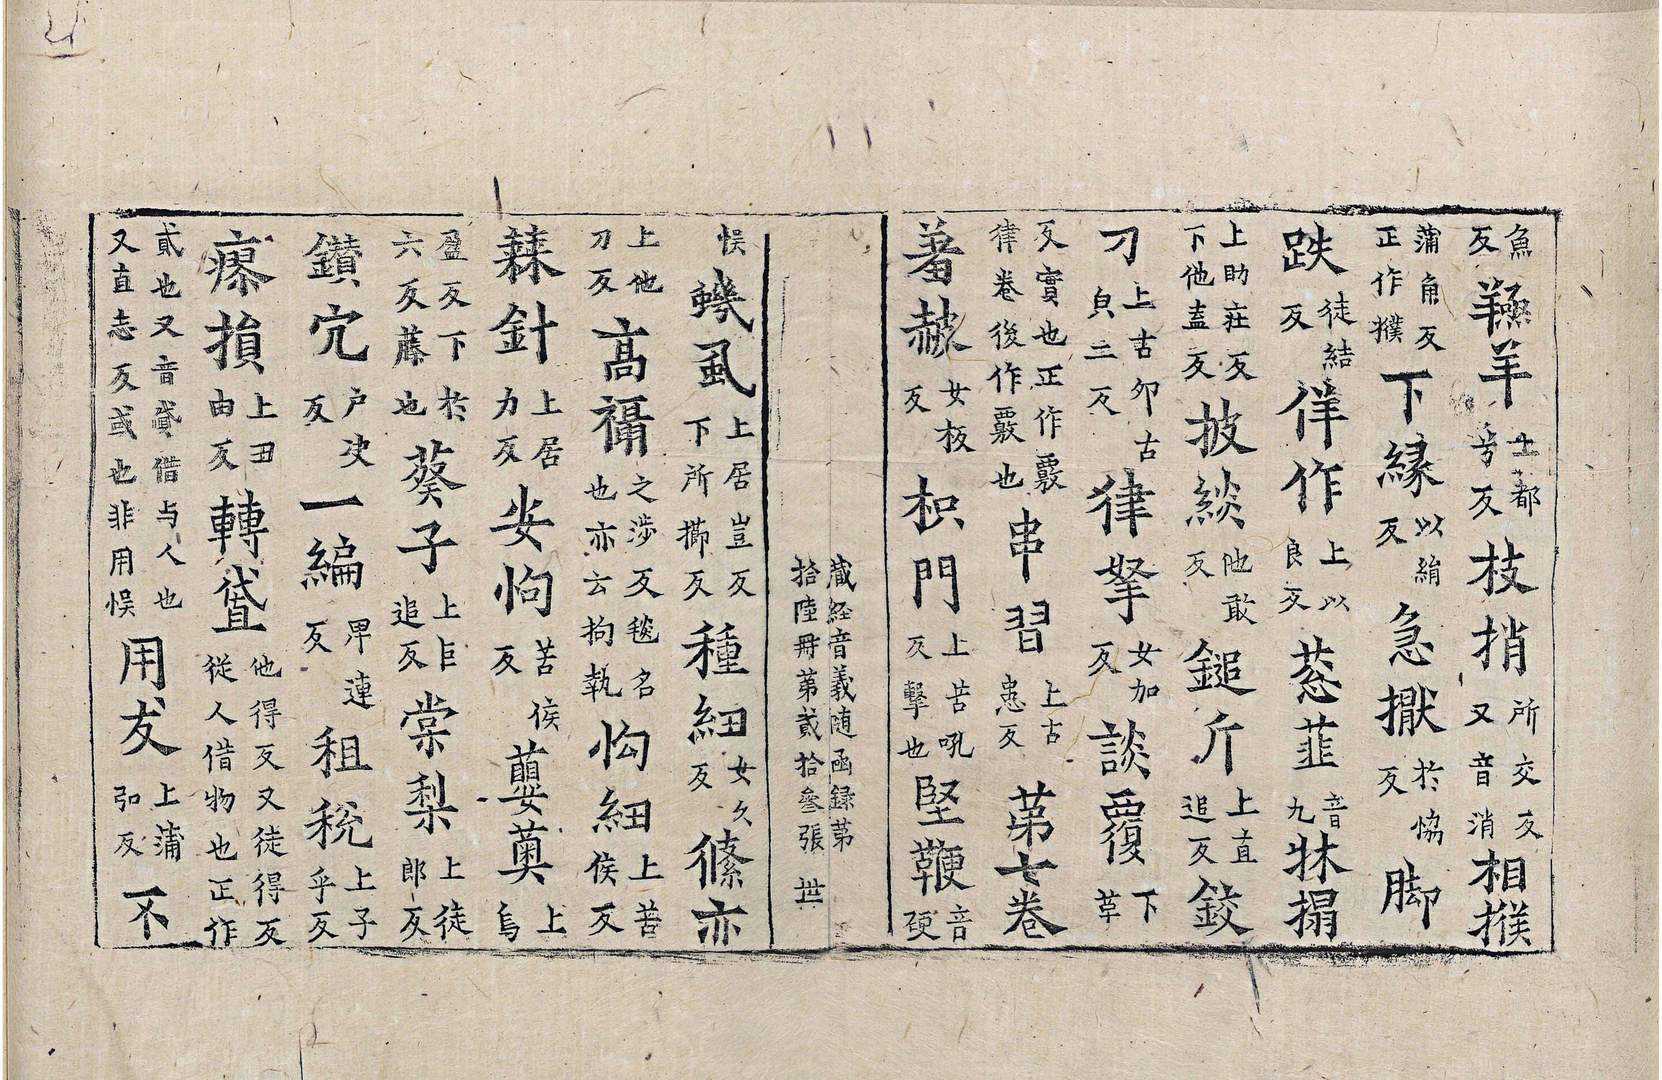 魚反羊反枝捎所交反又音消相撲
蒲角反正作撲下緣以絹反急擫於協反脚
跌徒結反徉作上以良反葱韮音九牀搨
上助莊反下他盍反披緂他敢反鎚斤上直追反鉸
刁上古卯古二反律拏女加反談覆下草
反實也正作覈律卷後作覈也串習上古患反第七卷
著赧女板反枳門上苦吼反擊也堅鞕音硬
藏経音義随函録第拾陸冊第貳拾叄張 世
悮蟣虱上居豈反下所擳反種紐女久反絛亦
上他刀反高襵之涉反毯名也亦云拘執怐紐上苦侯反
蕀針上居力反安怐苦侯反蘡薁上烏
盈反下於六反藤也葵子上巨追反棠梨上徒郎反
鑽穴户決反一編卑連反租稅上子乎反
瘳損上丑由反轉貣他得反又徒得反從人借物也正作
貳也又音貸借与人也又直志反或也非用悮用友上蒲弘反不